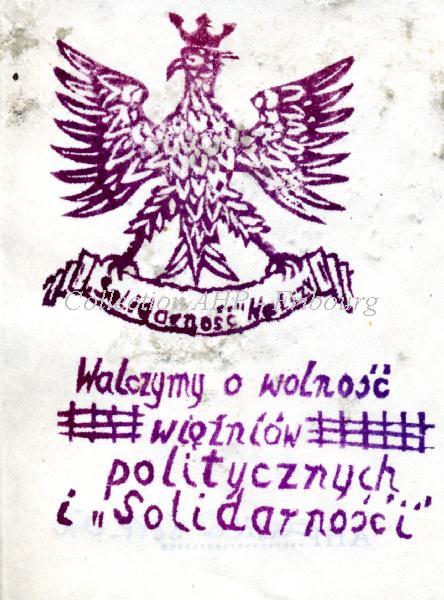 "Solidarność"
Collection AHP - Fribourg
Walczymy o wolność
więźniów
politycznych
i „Solidarnośći"